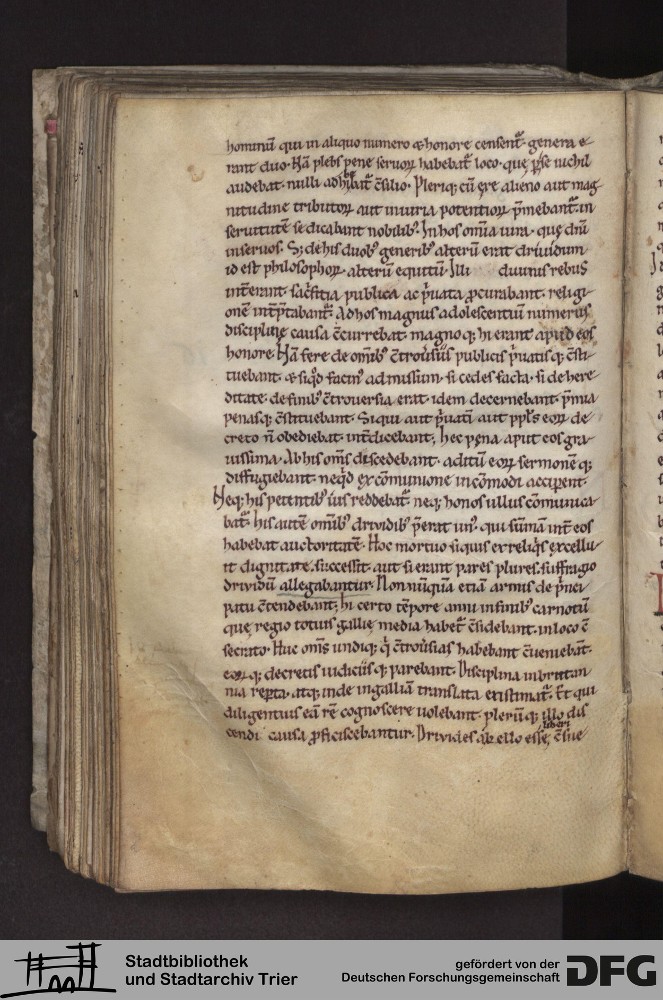 hominū qui in aliquo numero & honore censent᷒. genera e-
rant duo. Nā plebs pene seruoꝝ habebat᷒ loco. que ꝑ se nichil
audebat. nulli adhibebat᷒ c̄silio. Pleriq; cū ęre alieno aut mag
nitudine tributoꝝ aut iniuria potentioꝝ p̄mebant᷒. in
seruitutē se dicabant nobilib᷒. In hos om̄ia iura. que dn̄is
in seruos. S; de his duob᷒ generib᷒ alterū erat driuidum
id est philosophoꝝ. alterū equitū. Illi diuinis rebus
int̄erant. sac̄ficia publica ac p̄uata ꝓcurabant. religi-
onē int̄p̄tabant᷒. Ad hos magnus adolescentiū numerus
disciplinę causa c̄currebat. magno q; hi erant apud eos
honore. Nā fere de om̄ib᷒ c̄trou̅siis publicis p̄uatis q; c̄sti-
tuebant. & siq̇d facin᷒ admissum. si cedes facta. si de here-
ditate. de finib᷒ c̄trouersia erat. idem decernebant. p̄mia
penasq; c̄stituebant. Si qui aut p̄uati aut ppl̄s eoꝝ de-
creto n̄ obediebat. int̄dicebant. hec pena aput eos gra-
uissima. Ab his om̄s discedebant. aditū eoꝝ sermonē q;
diffugiebant. neq̇d ex c̄munione incōmodi acciperent.
Neq; his petentib᷒ ius reddebat᷒. neq; honos ullus c̄munica
bat᷒. his autē om̄ib᷒ driuidib᷒ p̄erat un᷒. qui sūmā int̄ eos
habebat auctoritatē. Hoc mortuo siquis ex reliq̇s excellu-
it dignitate. successit. aut si erant pares plures. suffragio
driuidū allegabantur. Non nūquā etiā armis de p̄nci-
patu c̄tendebant. hi certo tēpore anni in finib᷒ carnotū
que regio totius gallię media habet᷒ c̄sidebant. in loco c̄
secrato. Huc om̄s undiq; q̇ c̄trou̅sias habebant c̄ueniebāt.
eoꝝ q; decretis iudiciis q; parebant. Disciplina in brittan
nia reꝑta. atq; inde in galliā translata existimat᷒. Et qui
diligentius eā rē cognoscere uolebant. plerūq; illo dis
liberi
cendi causa ꝓficiscebantur. Driuides a bello esse c̄sue-
Stadtbibliothek
und Stadtarchiv Trier
gefördert von der
Deutschen Forschungsgemeinschaft
DFG